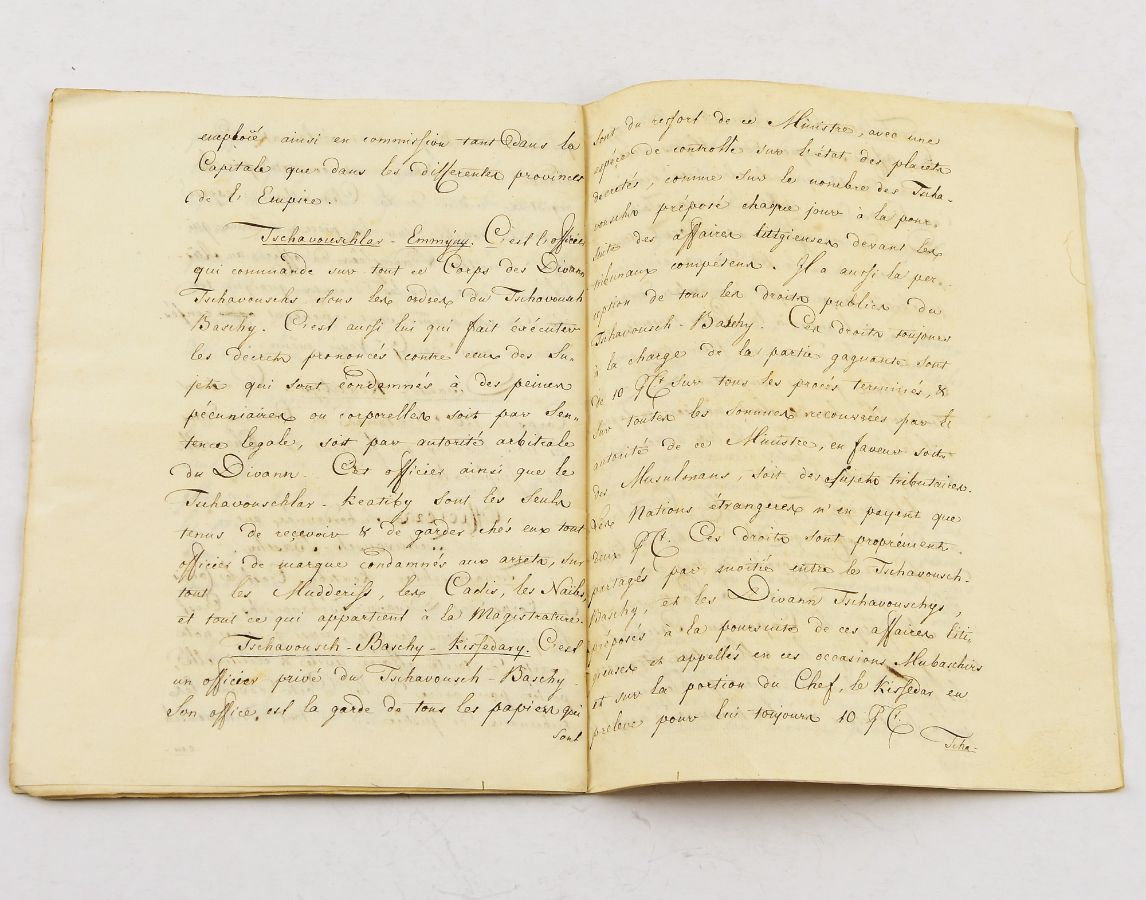 employés ainsi en commission tant dans la
Capitale que dans les differentes provinces
de l'Empire.
Tschavouschlar-Emmyny. C'est l'officier
qui commande sur tout ce Corps des Divann
Tschavouschs sous les ordres du Tschavousch
Baschy. C'est aussi lui qui fait éxécuter
les décrets prononcés contre ceux des Su-
jets qui sont condemnés à des peines
pécuniaires ou corporelles soit par Sen-
tence legale, soit par autorité arbitrale
du Divann. Ces officiers ainsi que le
Tschavouschlar-Keatiby sont les seuls
tenus de reçevoir & de garder chés eux tout
officier de marque condamnés aux arrets, sur
tout les Mudderiss, les Cadis, les Naibs,
et tout ce qui appartient à la Magistrature.
Tschavousch-Baschy-Kissedary. C'est
un officier privé du Tschavousch-Baschy.
Son office est la garde de tous les papiers qui
sont
sont du ressort de ce Ministre, avec une
espéce de controlle sur l'état des placèts
decretés, comme sur le nombre des Tscha-
vouschs préposé chaque jour à la pour-
suite des affaires litigieuses devant les
tribunaux compétens. Il a aussi la per-
ception de tous les droits publics du
Tschavousch-Baschy. Ces droits toujours
à la charge de la partie gagnante sont
de 10 pCt sur tous les procés terminés, &
sur toutes les sommes recouvrées par l'
autorité de ce Ministre, en faveur soit
des Musulmans, soit des sujets tributaires.
Les Nations étrangeres n'en payent que
deux pCt. Ces droits sont proprement
partagés par moitié entre le Tschavousch-
Baschy, et les Divann Tschavouschys,
préposés à la poursuite de ces affaires liti-
gieuses et appellés en ces occasions Mubaschirs
et sur la portion du Chef, le Kissedar en
preleve pour lui toujours 10 pCt.
Tscha-